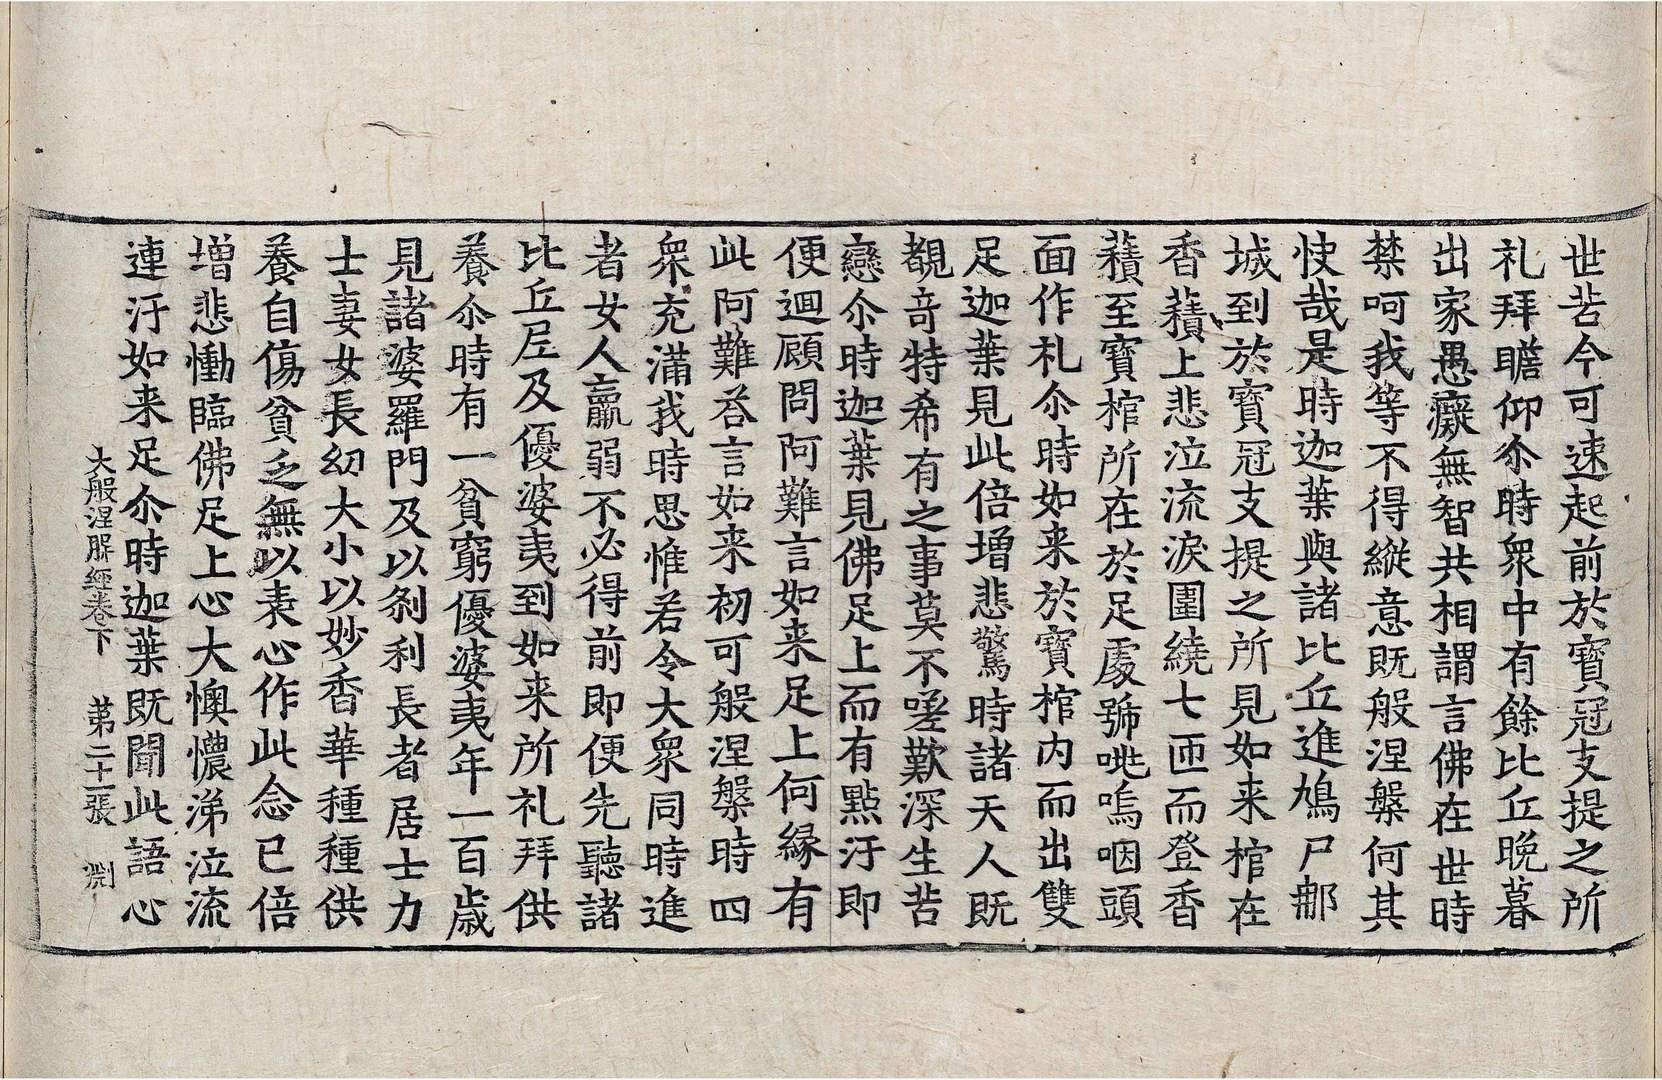 世苦今可速起前於寶冠支提之所
礼拜瞻仰尒時衆中有餘比丘晚暮
出家愚癡無智共相謂言佛在世時
禁呵我等不得縱意既般涅槃何其
快哉是時迦葉與諸比丘進鳩尸那
城到於寶冠支提之所見如来棺在
香𧂐上悲泣流淚圍繞七匝而登香
𧂐至寶棺所在於足處號咷嗚咽頭
面作礼尒時如来於寶棺内而出雙
足迦葉見此倍增悲驚時諸天人既
覩奇特希有之事莫不嗟歎深生苦
戀尒時迦葉見佛足上而有點汙即
便迴顧問阿難言如来足上何緣有
此阿難答言如来初可般涅槃時四
衆充滿我時思惟若令大衆同時進
者女人羸弱不必得前即便先聽諸
比丘尼及優婆夷到如来所礼拜供
養尒時有一貧窮優婆夷年一百歳
見諸婆羅門及以刹利長者居士力
士妻女長幼大小以妙香華種種供
養自傷貧乏無以表心作此念已倍
增悲慟臨佛足上心大懊憹涕泣流
連汙如来足尒時迦葉既聞此語心
大般涅槃經卷下　第二十二張　淵